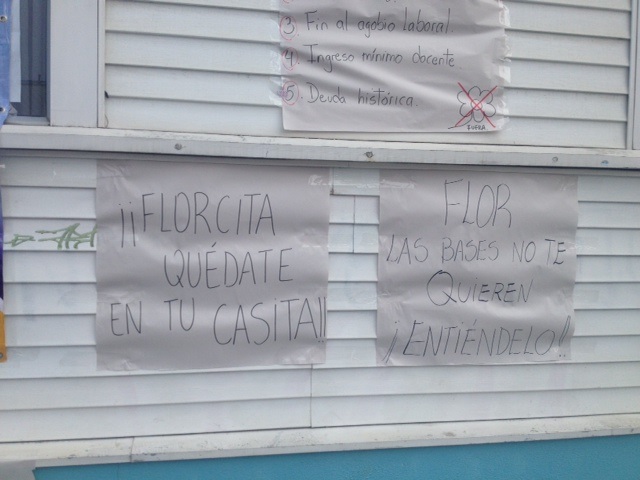 3. Fin al agobio laboral.
4. Ingreso mínimo docente
5. Deuda histórica.
¡¡FLORCITA
QUÉDATE
EN TU CASITA!!
FLOR
LAS BASES NO TE
QUIEREN
¡ENTIÉNDELO!!